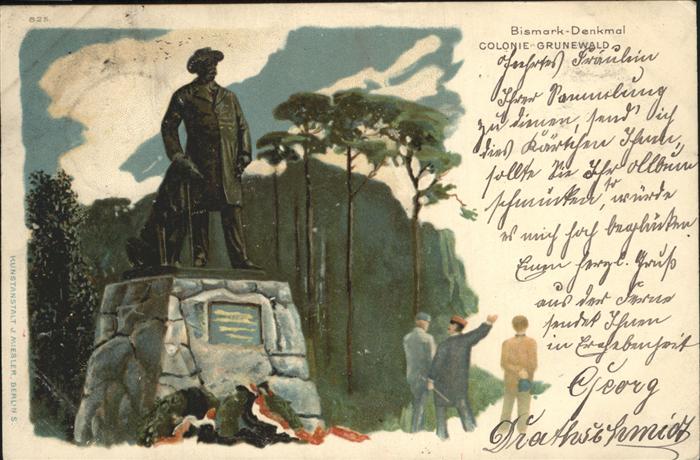 825
Bismark-Denkmal
COLONIE-GRUNEWALD
Geehrtes Fräulein
Ihrer Sammlung
zu dienen, send ich
dies Kärtchen Ihnen,
sollte Sie Ihr Album
schmücken, so würde
es mich hoch beglücken.
Einen herzl. Gruß
aus der Ferne
sendet Ihnen
in Ergebenheit
Georg
KUNSTANSTALT J. MIESLER, BERLIN S.